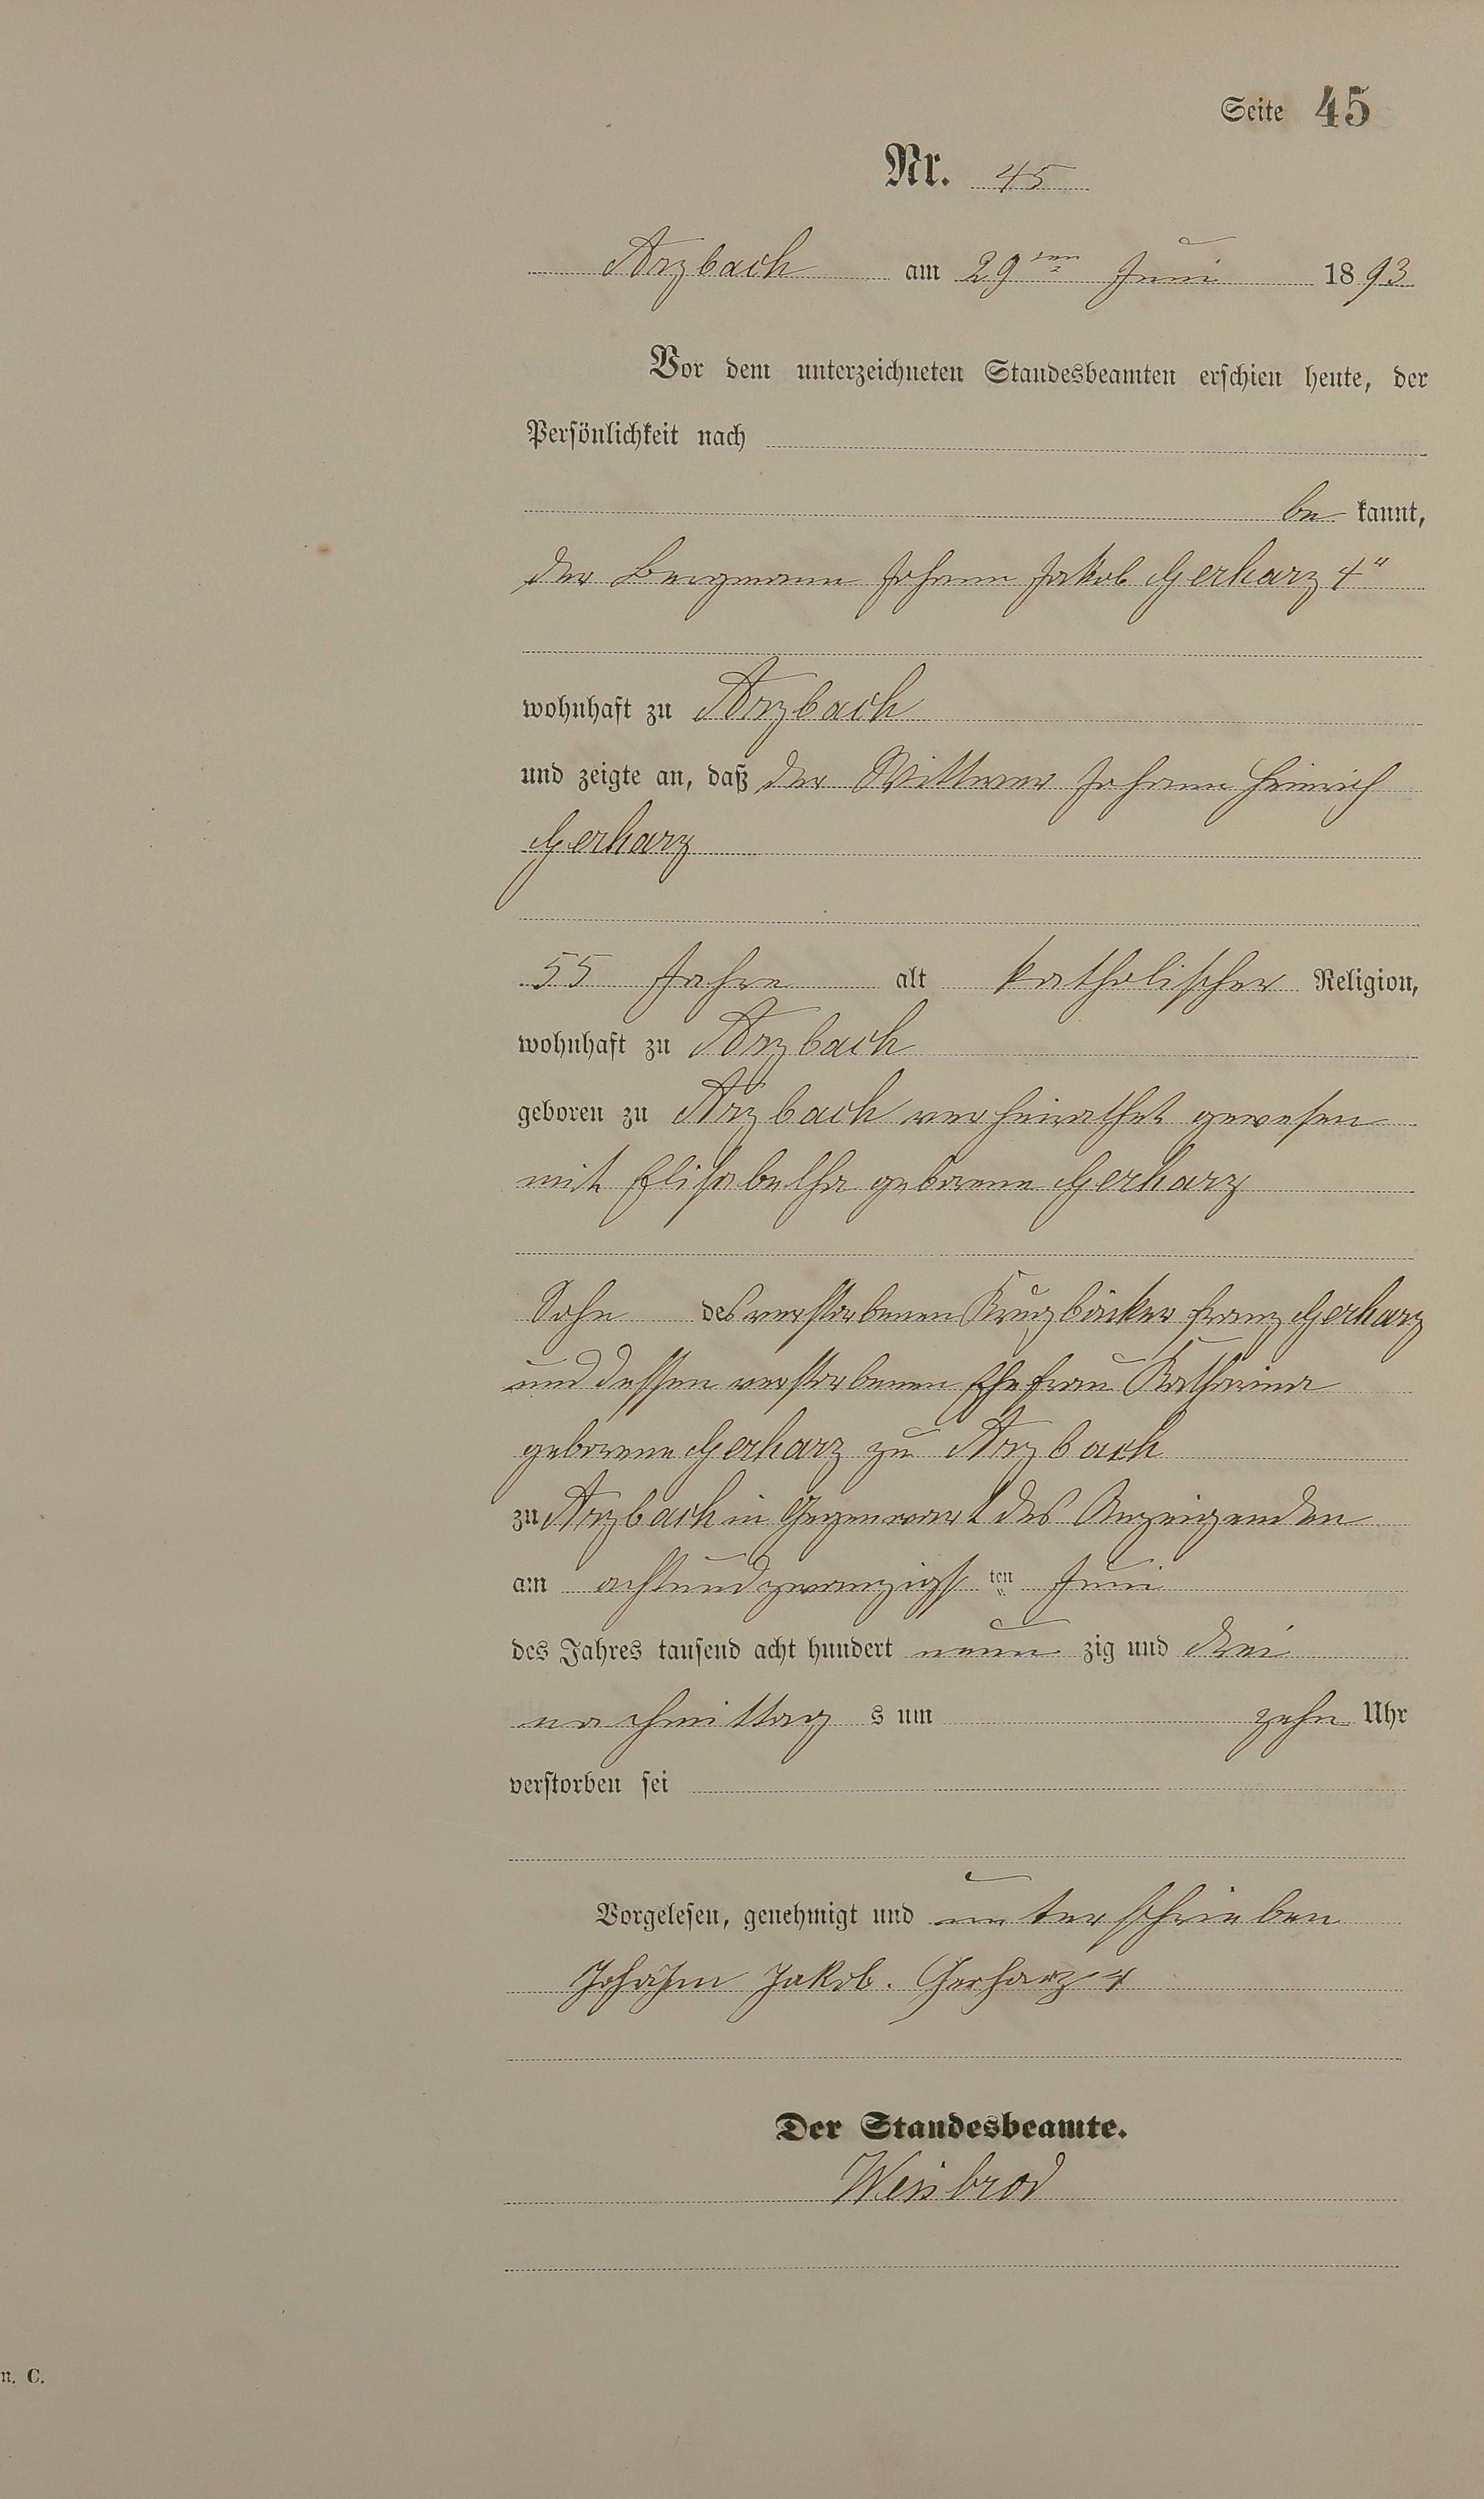 Seite 45
Nr. 45
Arzbach am 29ten Juni 1893
Vor dem unterzeichneten Standesbeamten erschien heute, der
Persönlichkeit nach
be kannt,
der Bergmann Johann Jakob Gerharz 4"
wohnhaft zu Arzbach
und zeigte an, daß der Wittwer Johann Heinrich
Gerharz
55 Jahre alt katholischer Religion,
wohnhaft zu Arzbach
geboren zu Arzbach verheirathet gewesen
mit Elisabetha geborene Gerharz
Sohn des verstorbenen Krugbäcker Franz Gerharz
und dessen verstorbenen Ehefrau Katharina
geborene Gerharz zu Arzbach
zu Arzbach in Gegenwart des Anzeigenden
am achtundzwanzigs ten Juni
des Jahres tausend acht hundert neun zig und drei
nachmittag s um zehn Uhr
verstorben sei
Vorgelesen, genehmigt und unterschrieben
Johann Jakob. Gerharz 4
Der Standesbeamte.
Weisbrod
n. C.